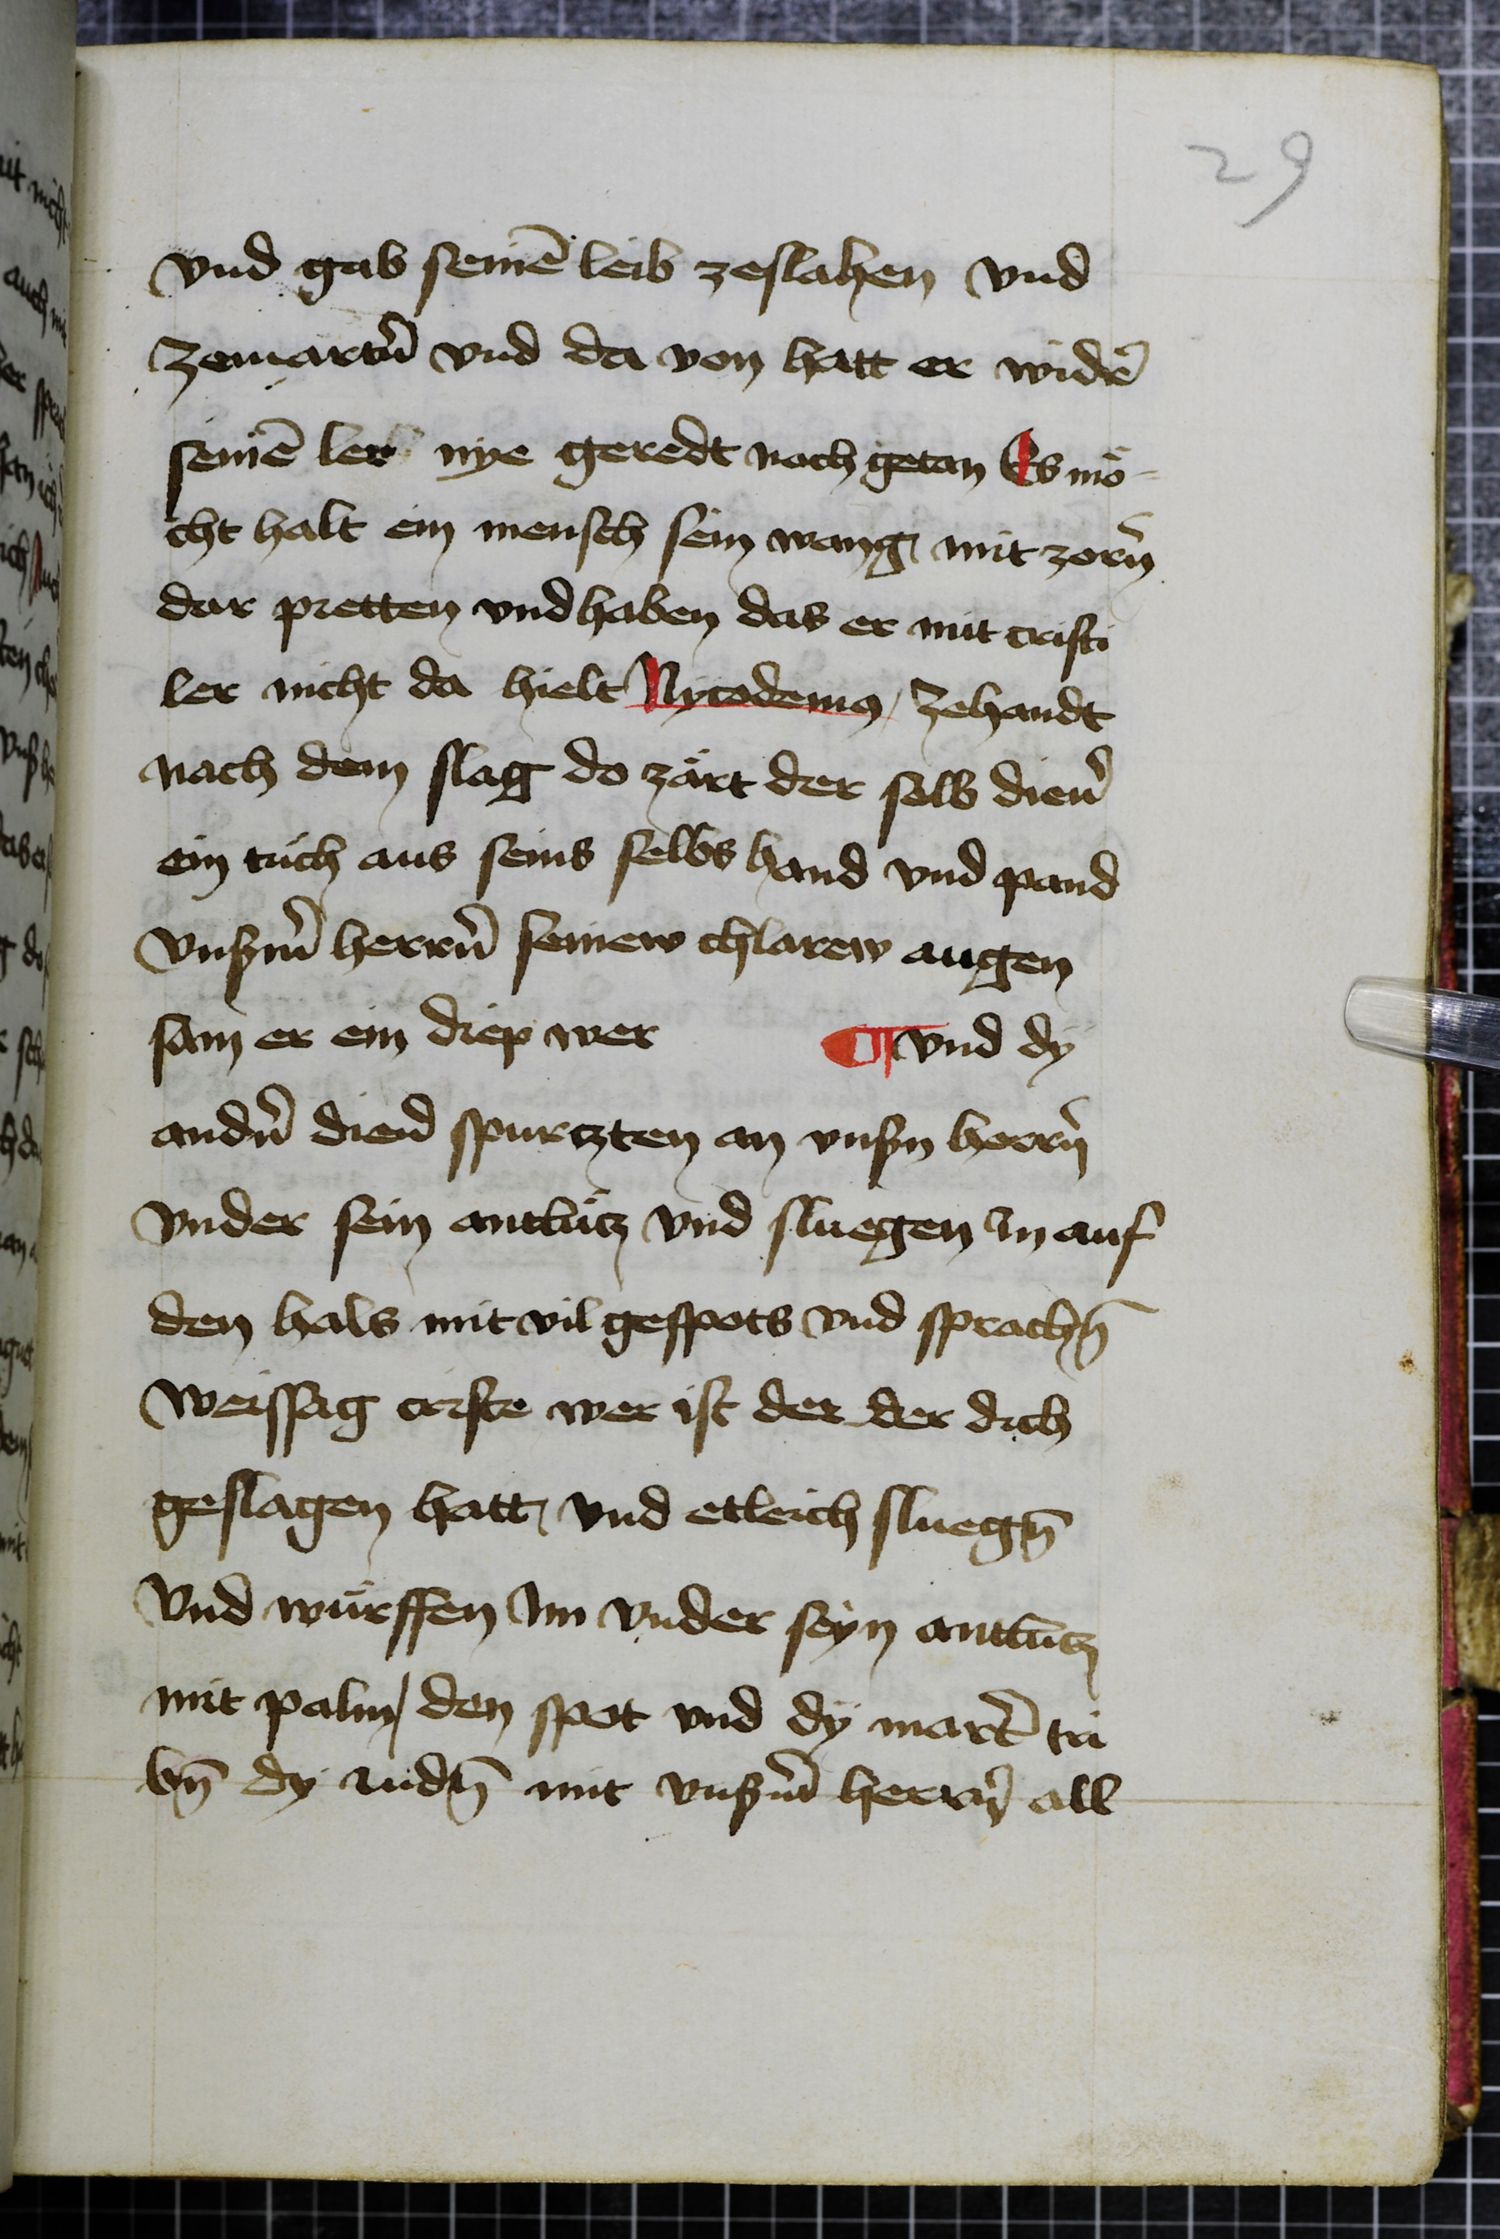 29
vnd gab seinē leib zeslahen vnd
zemartn̄ vnd da von hatt er widē
seinē ler nye geredt noch getan Es mö-
cht halt ein mensch sein wang mit zorn̄
dar pretten vnd haben das er mit cristi
ler nicht da hielt Nycodemꝯ / zehandt
nach dem slag do zärt der selb dien̄
ein tuch aus seins selbs hand vnd pand
vnßm̄ herrn̄ seinew chlarew augen
sam er ein diep wer ¶ vnd dy
andn̄ dien̄ spurtzten an vnßn herrn̄
vnder sein antlütz vnd sluegen in auf
den hals mit vil gespots vnd sprachn̄
weissag criste wer ist der der dich
geslagen hatt / vnd etleich sluegn̄
vnd würffen im vnder seyn antlütz
mit palm / den spot vnd dy mart̄ tri
bn̄ dy iudn̄ mit vnßm̄ herrn̄ all